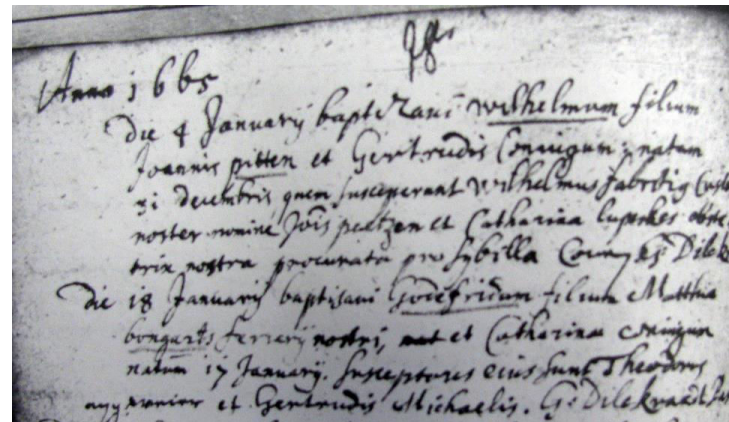 Anno 1665
Die 4 Januarij baptizavi Wilhelmum filium
Joannis pitten et Gertrudis Coniugum; natum
31 decembris, quem susceperunt Wilhelmus fabritig
noster nomine Jois peetzen et Catharina luperkes obste
trix nostra procuratrix pro Sybilla
Die 18 Januarij baptisavi Godefridum filium Matthia
bongarts ferrarij nostri, et Catharinae coniugum
natum 17 January. Susceptores eius sunt Theodorus
et Gertrudis Michaelis. G: Dilckraedt